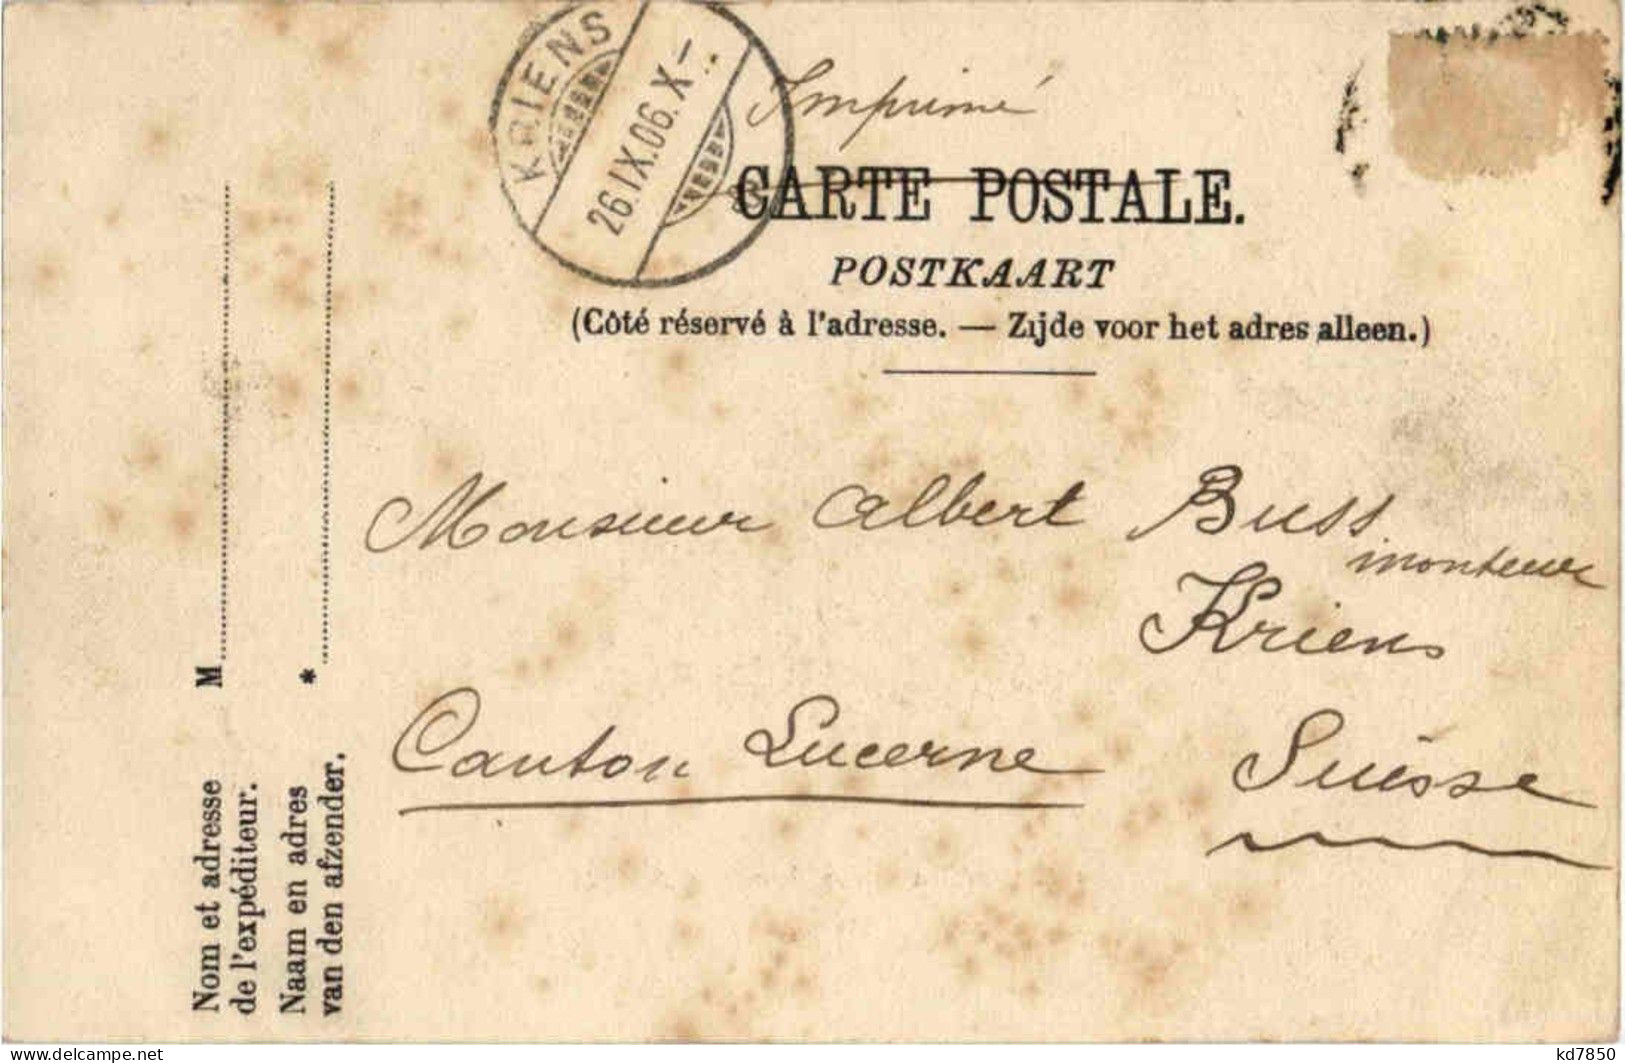 KRIENS
26.IX.06.X-
Imprimé
CARTE POSTALE.
POSTKAART
(Côté réservé à l'adresse. — Zijde voor het adres alleen.)
Monsieur Albert Buss
monteur
Kriens
Canton Lucerne Suisse
Nom et adresse M
de l'expéditeur.
Naam en adres *
van den afzender.
kd7850